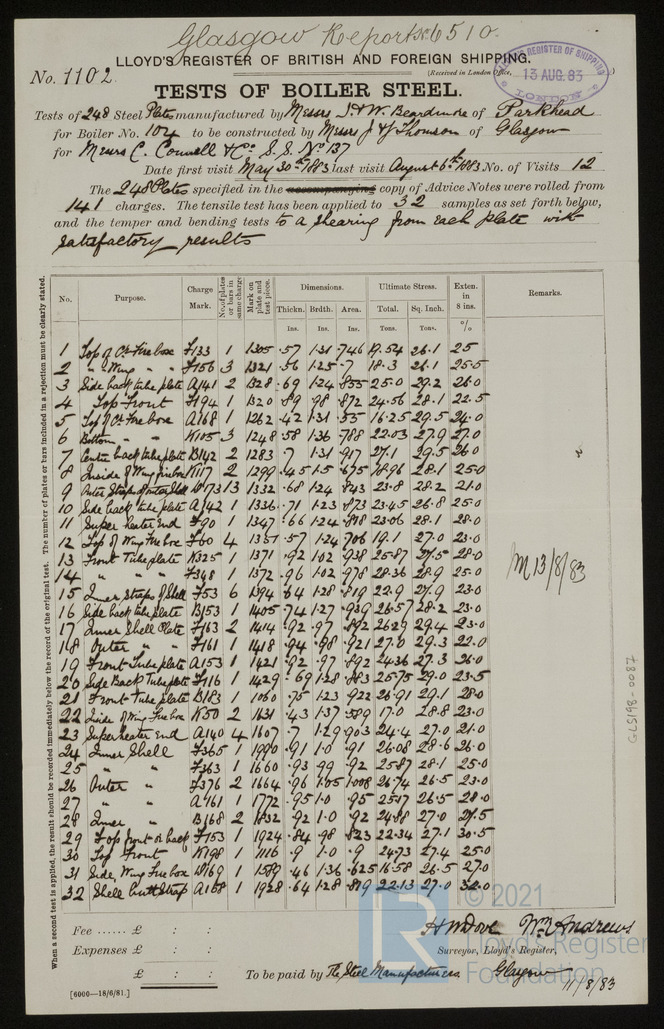 Glasgow Report No 6510.
LLOYD'S REGISTER OF BRITISH AND FOREIGN SHIPPING.
No. 1102
(Received in London Office,
LLOYD'S REGISTER OF SHIPPING
13 AUG. 83
LONDON
TESTS OF BOILER STEEL.
Tests of 248 Steel Plates manufactured by Messrs J. & W. Beardmore of Parkhead
for Boiler No. 104 to be constructed by Messrs J & G Thomson of Glasgow
for Messrs C. Connell & Co. S.S. No 137
Date first visit May 30th 1883 last visit August 6th 1883 No. of Visits 12
The 248 Plates specified in the accompanying copy of Advice Notes were rolled from
141 charges. The tensile test has been applied to 32 samples as set forth below,
and the temper and bending tests to a shearing from each plate with
satisfactory results
When a second test is applied, the result should be recorded immediately below the record of the original test. The number of plates or bars included in a rejection must be clearly stated.
No. Purpose. Charge Mark. No. of plates or bars in same charge Mark on plate and test piece. Dimensions. Ultimate Stress. Exten. in 8 ins. Remarks.
Thickn. Brdth. Area. Total. Sq. Inch.
Ins. Ins. Ins. Tons. Tons. %
1 Top of Cr. Fire box F133 1 1305 .57 1.31 .746 19.54 26.1 25
2 " " Wing " " F156 3 1321 .56 1.25 .7 18.3 26.1 25.5
3 Side back tube plate A141 2 1328 .69 1.24 .855 25.0 29.2 26.0
4 Top Front F194 1 1320 .89 .98 .872 24.56 28.1 22.5
5 Top of Cr. Fire box A168 1 1262 .42 1.31 .55 16.25 29.5 24.0
6 Bottom " " K105 3 1248 .58 1.36 .788 22.03 27.9 27.0
7 Centre back tube plate B142 2 1283 .7 1.31 .917 27.1 29.5 26.0
8 Inside of Wing fire box K117 2 1299 .45 1.5 .675 18.96 28.1 25.0
9 Outer Straps of outer Shell 13 1332 .68 1.24 .843 23.8 28.2 21.0
10 Side back tube plate A142 1 1336 .71 1.23 .873 23.45 26.8 25.0
11 Super heater End F90 1 1347 .66 1.24 .818 23.06 28.1 28.0
12 Top of Wing Fire box F60 4 .57 1.24 .706 19.1 27.0 23.0
13 Front Tube plate K325 1 1371 .92 1.02 .938 25.87 27.5 28.0
14 " " " F348 1 1372 .96 1.02 .978 28.36 28.9 25.0
15 Inner Straps of Shell F53 6 1394 .64 1.28 .819 22.9 27.9 23.0
16 Side back tube plate B153 1 1405 .74 1.27 .939 26.57 28.2 23.0
17 Inner Shell Plate F163 2 1414 .92 .97 .892 26.29 29.4 23.0
18 Outer " " F161 1 1418 .94 .98 .921 27.0 29.3 22.0
19 Front Tube plate A153 1 1421 .92 .97 .892 24.36 27.3 26.0
20 Side Back Tube plate F116 1 1429 .69 1.28 .883 25.75 29.0 23.5
21 Front Tube plate B183 1 1060 .75 1.23 .922 26.91 29.1 28.0
22 Inside of Wing Fire box K50 2 1631 .43 1.37 .589 17.0 28.8 23.0
23 Super heater End A140 4 1607 .7 1.29 .903 24.4 27.0 21.0
24 Inner Shell F365 1 1990 .91 1.0 .91 26.08 28.6 26.0
25 " " F363 1 1660 .93 .99 .92 25.87 28.1 25.0
26 Outer " F376 2 1664 .96 1.05 1.008 26.74 26.5 23.0
27 " " A161 1 1772 .95 1.0 .95 25.17 26.5 28.0
28 Inner " B168 2 1832 .92 1.0 .92 24.88 27.0 27.5
29 Top front or back F153 1 1924 .84 .98 .823 22.34 27.1 30.5
30 Top Front K198 1 1116 .9 1.0 .9 24.73 27.4 25.0
31 Side, Wing Fire box 1 1589 .46 1.36 .625 16.58 26.5 27.0
32 Shell butt Strap A168 1 1928 .64 1.28 .819 22.13 27.0 32.0
13/8/83
GLS198-0087
Fee ...... £ : :
Expenses £ : :
£ : :
H W Dove Wm Andrews
Surveyor, Lloyd's Register,
To be paid by The Steel Manufacturers Glasgow
11/8/83
[6000—18/6/81.]
© 2021
LR
Lloyd's Register
Foundation